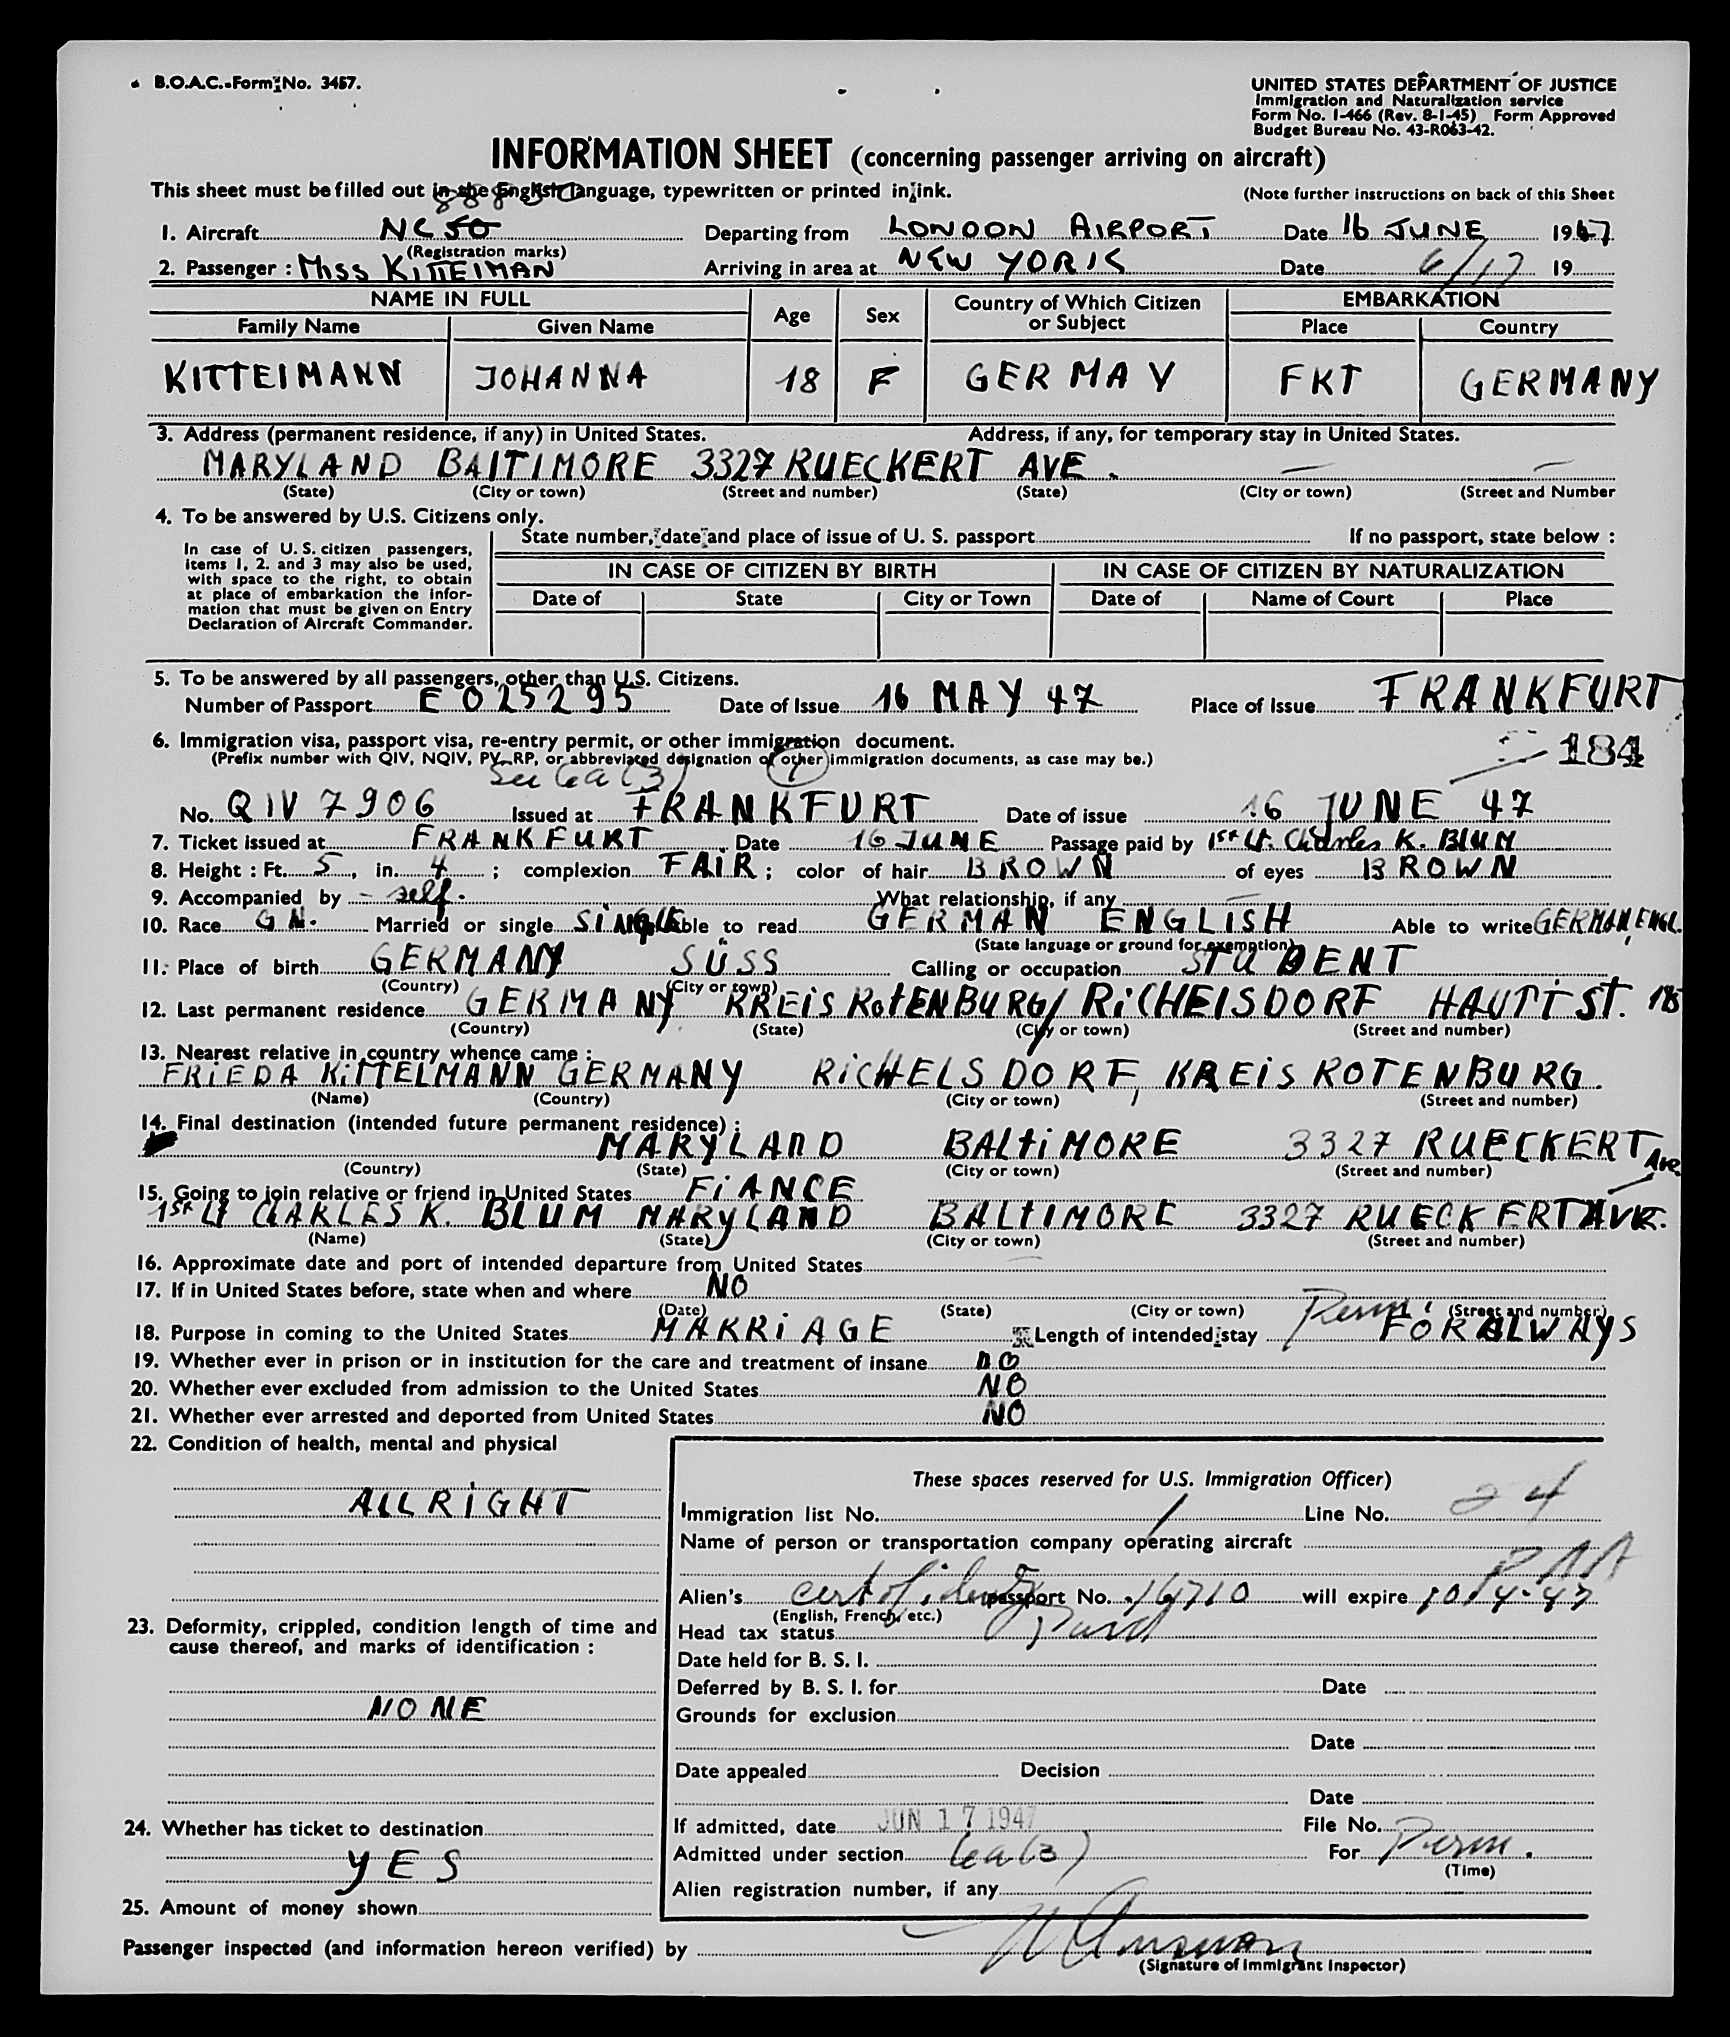 B.O.A.C.-Form No. 3457.
UNITED STATES DEPARTMENT OF JUSTICE
Immigration and Naturalization service
Form No. I-466 (Rev. 8-1-45) Form Approved
Budget Bureau No. 43-R063-42.
INFORMATION SHEET (concerning passenger arriving on aircraft)
This sheet must be filled out in the English language, typewritten or printed in ink. (Note further instructions on back of this Sheet
1. Aircraft NC 50 Departing from LONDON AIRPORT Date 16 JUNE 1947
(Registration marks)
2. Passenger : MISS KITTELMAN Arriving in area at NEW YORK Date 6/17 19
NAME IN FULL Age Sex Country of Which Citizen or Subject EMBARKATION
Family Name Given Name Place Country
KITTELMANN JOHANNA 18 F GERMAY FKT GERMANY
3. Address (permanent residence, if any) in United States. Address, if any, for temporary stay in United States.
MARYLAND BALTIMORE 3327 RUECKERT AVE. — —
(State) (City or town) (Street and number) (State) (City or town) (Street and Number
4. To be answered by U.S. Citizens only.
State number, date and place of issue of U. S. passport If no passport, state below :
In case of U. S. citizen passengers,
items 1, 2. and 3 may also be used,
with space to the right, to obtain
at place of embarkation the infor-
mation that must be given on Entry
Declaration of Aircraft Commander.
IN CASE OF CITIZEN BY BIRTH IN CASE OF CITIZEN BY NATURALIZATION
Date of State City or Town Date of Name of Court Place
5. To be answered by all passengers, other than U.S. Citizens.
Number of Passport E 025295 Date of Issue 16 MAY 47 Place of Issue FRANKFURT
6. Immigration visa, passport visa, re-entry permit, or other immigration document. 184
(Prefix number with QIV, NQIV, PV, RP, or abbreviated designation of other immigration documents, as case may be.)
Sec 6a(3)
No. QIV 7906 Issued at FRANKFURT Date of issue 16 JUNE 47
7. Ticket issued at FRANKFURT Date 16 JUNE Passage paid by 1st Lt. Charles K. BLUM
8. Height : Ft. 5, in. 4 ; complexion FAIR ; color of hair BROWN of eyes BROWN
9. Accompanied by - self. What relationship, if any —
10. Race GN. Married or single SINGLE Able to read GERMAN ENGLISH Able to write GERMAN, ENGL.
(State language or ground for exemption)
11. Place of birth GERMANY SÜSS Calling or occupation STUDENT
(Country) (City or town)
12. Last permanent residence GERMANY KREIS ROTENBURG/ RICHELSDORF HAUPTST. 185
(Country) (State) (City or town) (Street and number)
13. Nearest relative in country whence came :
FRIEDA KITTELMANN GERMANY RICHELSDORF, KREIS ROTENBURG.
(Name) (Country) (City or town) (Street and number)
14. Final destination (intended future permanent residence) :
MARYLAND BALTIMORE 3327 RUECKERT Ave.
(Country) (State) (City or town) (Street and number)
15. Going to join relative or friend in United States FIANCE
1st Lt CHARLES K. BLUM MARYLAND BALTIMORE 3327 RUECKERT AVE.
(Name) (State) (City or town) (Street and number)
16. Approximate date and port of intended departure from United States —
17. If in United States before, state when and where NO
(Date) (State) (City or town) (Street and number)
18. Purpose in coming to the United States MARRIAGE Length of intended stay Perm. FOR ALWAYS
19. Whether ever in prison or in institution for the care and treatment of insane NO
20. Whether ever excluded from admission to the United States NO
21. Whether ever arrested and deported from United States NO
22. Condition of health, mental and physical
ALLRIGHT
23. Deformity, crippled, condition length of time and
cause thereof, and marks of identification :
NONE
24. Whether has ticket to destination
YES
25. Amount of money shown
These spaces reserved for U.S. Immigration Officer)
Immigration list No. 1 Line No. 24
Name of person or transportation company operating aircraft
PAA
Alien's cert of identity passport No. 16710 will expire 10-14-47
(English, French, etc.)
Head tax status Paid
Date held for B. S. I.
Deferred by B. S. I. for Date
Grounds for exclusion
Date
Date appealed Decision
Date
If admitted, date JUN 17 1947 File No.
Admitted under section 6a(3) For Perm.
(Time)
Alien registration number, if any
Passenger inspected (and information hereon verified) by
(Signature of Immigrant Inspector)